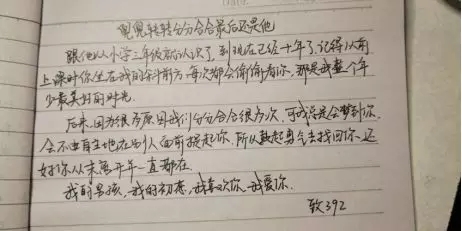 兜兜转转分分合合最后还是他
跟他从小学三年级就认识了到现在已经十年了,记得以前
上课时你坐在我的斜前方,每次都会偷偷看你,那是我整个年
少最美好的时光.
后来,因为很多原因我们分分合合很多次,可我总是会梦到你,
会不由自主地在别人面前提起你,所以鼓起勇气去找回你,还
好你从未离开年一直都在.
我的男孩,我的初恋,我喜欢你,我爱你.
致392